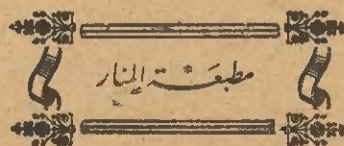 مطبعَة المنار